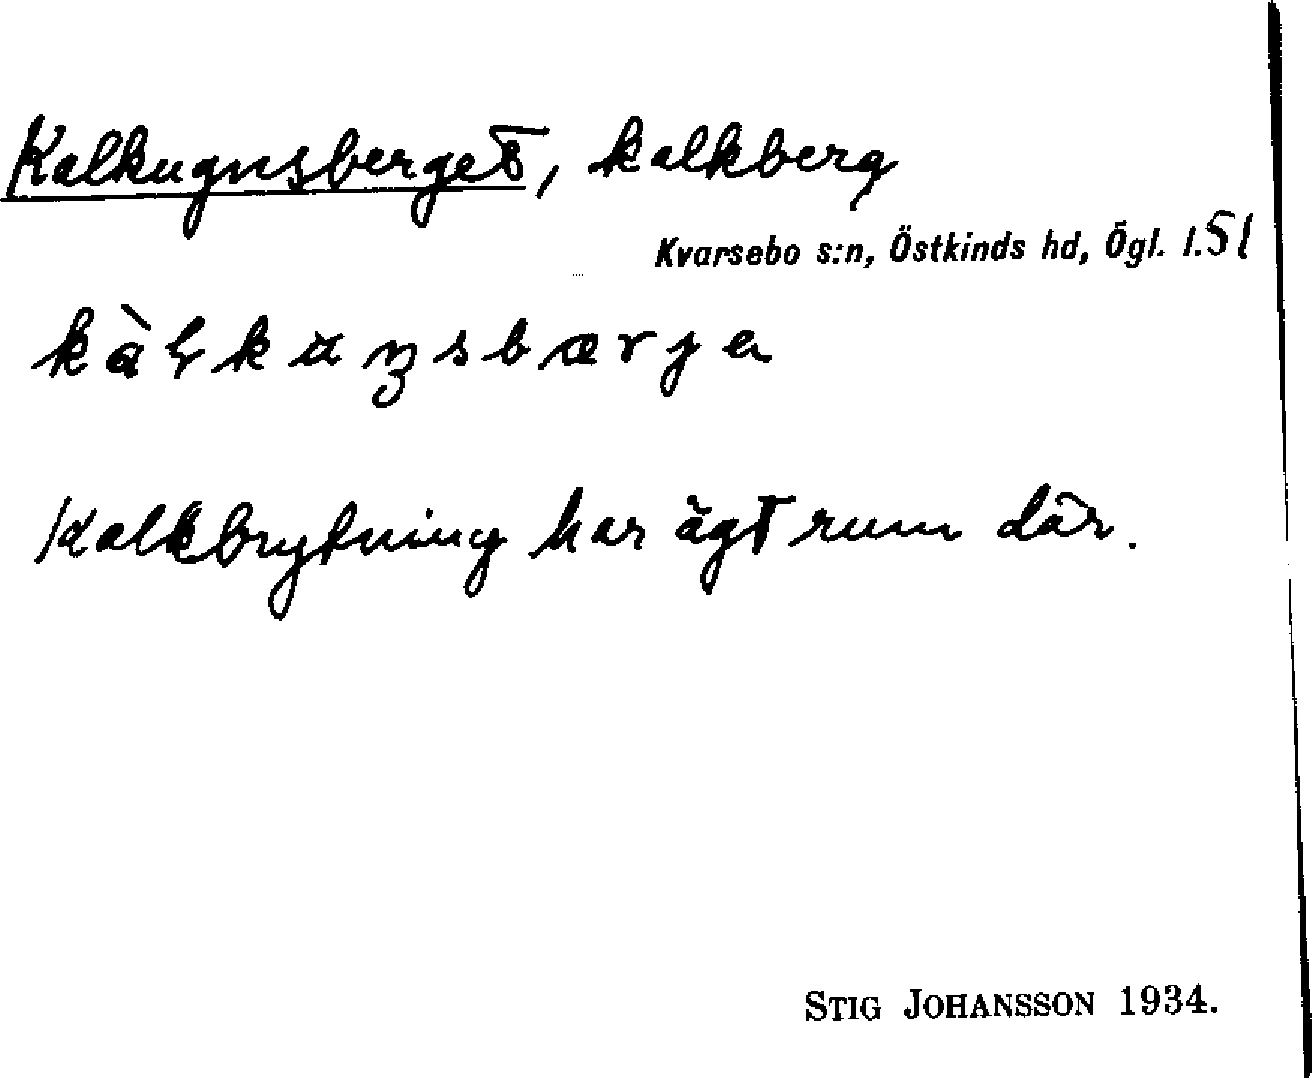 Kalkugnsberget, kalkberg
Kvarsebo s:n, Östkinds hd, Ögl. l. 51
Kalkbrytning har ägt rum där.
STIG JOHANSSON 1934.